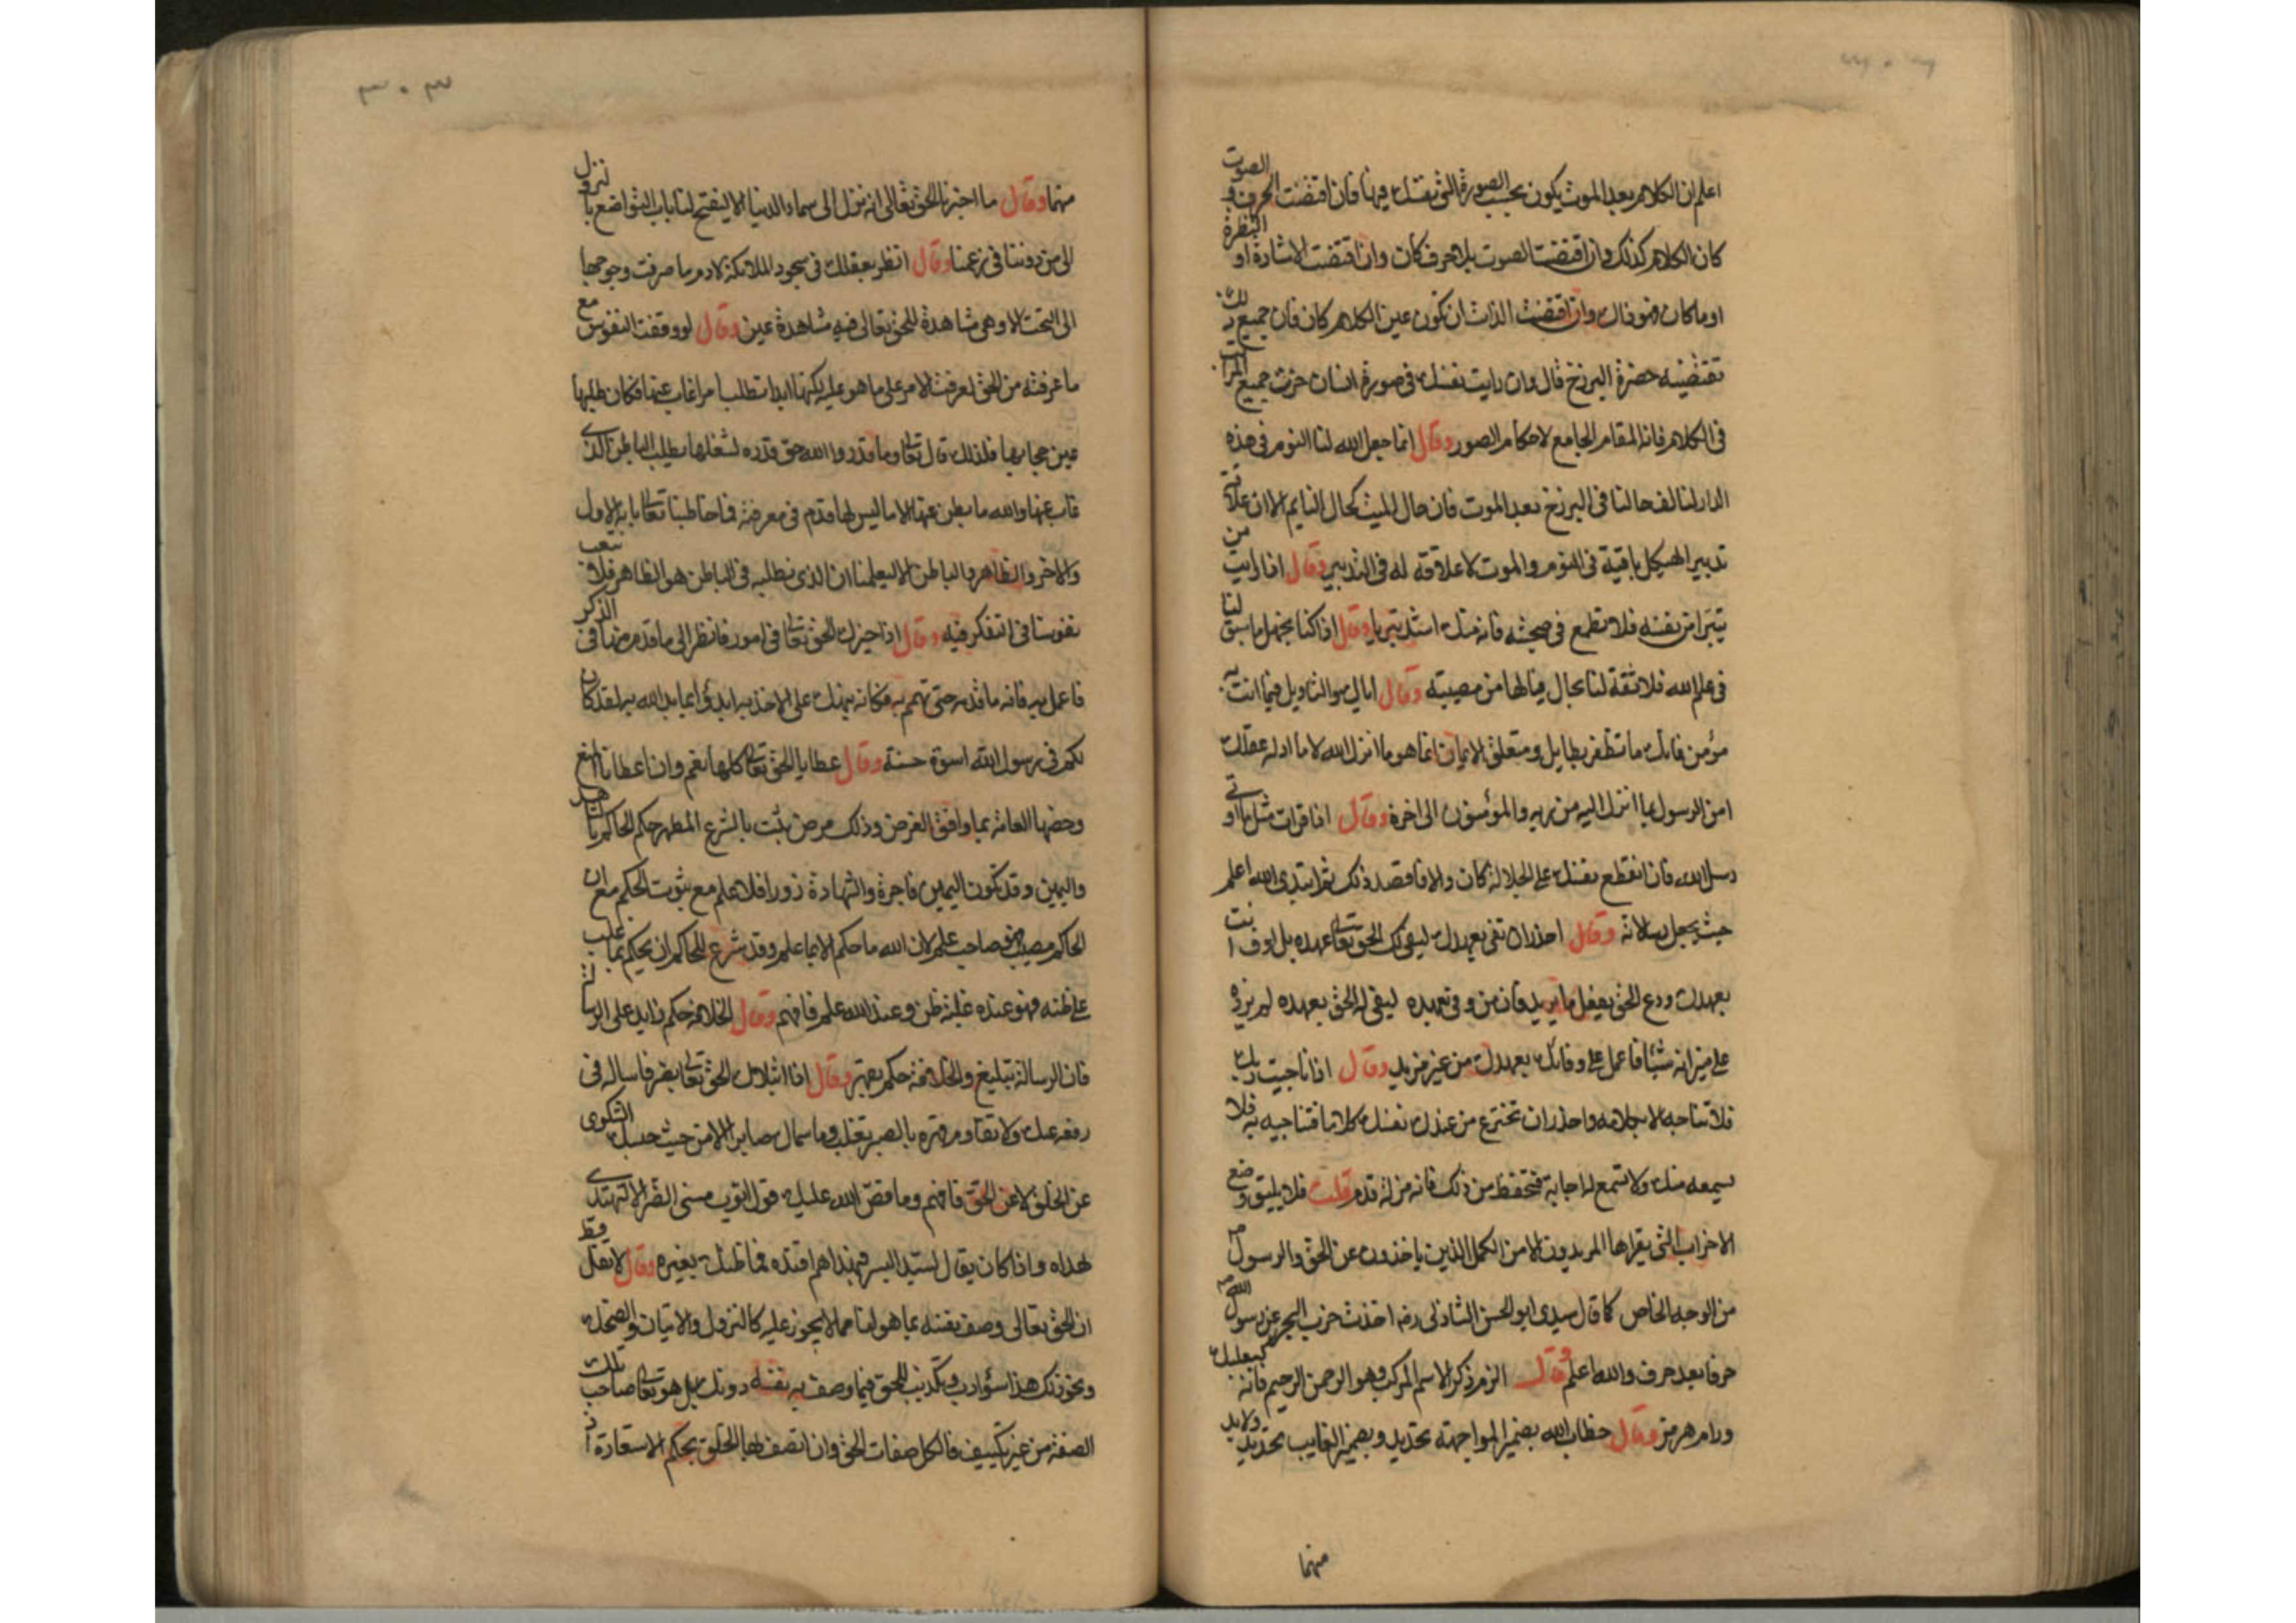 اعلم ان الكلام بعد الموت يكون بحسب الصورة التي نفسك فيها فان اقتضت الحرف والصوت
كان الكلام كذلك وان اقتضت الصوت بلا حرف كان وان اقتضت الاشارة او النظرة
او ما كان فهو ذاك وان اقتضت الذات ان تكون عين الكلام كان فان جميع ذلك
تقتضيه حضرة البرزخ قال وان رايت نفسك في صورة انسان حزت جميع المراتب
في الكلام فانه المقام الجامع لاحكام الصور وقال انما جعل الله لنا النوم في هذه
الدار لنالف حالنا في البرزخ بعد الموت فان حال الميت كحال النايم الا ان علاقة
تدبير الهيكل باقية في النوم والموت لا علاقة له في التدبير وقال اذا رايت من
يتبرا من نفسه فلا تطمع في صحبته فانه منك اشد تبريا وقال اذا كنا نجهل ما سبق لنا
في علم الله فلا ثقة لنا بحال فيالها من مصيبة وقال اياك والتاويل فيما انت به
مؤمن فانك ما تظفر بطايل ومتعلق الايمان انما هو ما انزل الله لا ما ادله عقلك
امن الرسول بما انزل اليه من ربه والمؤمنون الى اخره وقال اذا قرات مثل ما اوتي
رسل الله فان انقطع نفسك على الجلالة كان والا فاقصد ذلك ثم ابتدى الله اعلم
حيث يجعل رسالاته وقال احذر ان تفي بعهدك ليفي لك الحق تعالى بعهده بل اوف انت
بعهدك ودع الحق يفعل ما يريد فان من وفى بعهده ليفي له الحق بعهده لم يزده
على ميزانه شيئا فاعمل على وفائك بعهدك من غير مزيد وقال اذا ناجيت ربك
فلا تناجه الا بكلامه واحذر ان تخترع من عندك نفسك كلاما فتناجيه به فلا
يسمعه منك ولا تسمع له اجابة فتحفظ من ذلك فانه مزلة قدم قلت فلا يليق وضع
الاحزاب التي يقراها المريدون الا من الكمل الذين ياخذون عن الحق والرسول صم
من الوجه الخاص كما قال سيدي ابو الحسن الشاذلي رضه اخذت حزب البحر عن رسول الله صم
حرفا بعد حرف والله اعلم وقال الزم ذكر الاسم المركب وهو الرحمن الرحيم فانه كبعلبك
ورام هرمز وقال خطاب الله بضمير المواجهة تحديد وبضمير الغايب تحديد ولابد
منهما
٣٠٣
منهما وقال ما اخبرنا الحق تعالى انه ينزل الى سماء الدنيا الا ليفتح لنا باب التواضع بالنزول
الى من دوننا في زعمنا وقال انظر بعقلك في سجود الملائكة لادم ما صرفت وجوهها
الى التحت الا وهي مشاهدة للحق تعالى فيه مشاهدة عين وقال لو وقفت النفوس مع
ما عرفته من الحق لعرفت الامر على ما هو عليه لكنها ابدا تطلب امرا غاب عنها فكان طلبها
عين حجابها فلذلك قال تعالى وما قدروا الله حق قدره لشغلها بطلب الباطن الذي
غاب عنها والله ما بطن عنها الا ما ليس لها قدم في معرفته فما خاطبنا تعالى بانه الاول
والاخر والظاهر والباطن الا ليعلمنا ان الذي نطلبه في الباطن هو الظاهر فلا نتعب
نفوسنا في التفكر فيه وقال اذا خيرك الحق تعالى في امور فانظر الى ما قدم منها في الذكر
فاعمل به فانه ما قدمه حتى تهمم به فكانه ينبهك على الاخذ به ابدؤا بما بدا الله به لقد كان
لكم في رسول الله اسوة حسنة وقال عطايا الحق تعالى كلها نعم وان اعطانا منع
وخصها العامة بما وافق الغرض وذلك مرض ثبت بالشرع المطهر حكم الحاكم بالشاهد
واليمين وقد تكون اليمين فاجرة والشهادة زورا فلا علم مع ثبوت الحكم مع ان
الحاكم مصيب فهو صاحب علم لان الله ما حكم الا بما علم وقد شرع للحاكم ان يحكم بما غلب
على ظنه فهو عنده غلبة ظن وعند الله علم فافهم وقال الخلافة حكم زايد على الرسالة
فان الرسالة تبليغ والخلافة حكم بقهر وقال اذا ابتلاك الحق تعالى بضر فاساله في
رفعه عنك ولا تقاوم قهره بالصبر تغلب وما سماك صابرا الا من حيث حبسك الشكوى
عن الخلق لا عن الحق فافهم وما قص الله عليك قول ايوب مسني الضر الا لتهتدي
بهداه واذا كان يقال لسيد البشر فبهداهم اقتده فما ظنك بغيره وقال لا تقل قط
ان الحق تعالى وصف نفسه بما هو لنا مما لا يجوز عليه كالنزول والاتيان والضحك
ونحو ذلك هذا سؤ ادب وتكذيب للحق فيما وصف به نفسه دونك بل هو تعالى صاحب تلك
الصفة من غير تكييف فالكل صفات الحق وان اتصف بها الخلق بحكم الاستعارة اذ